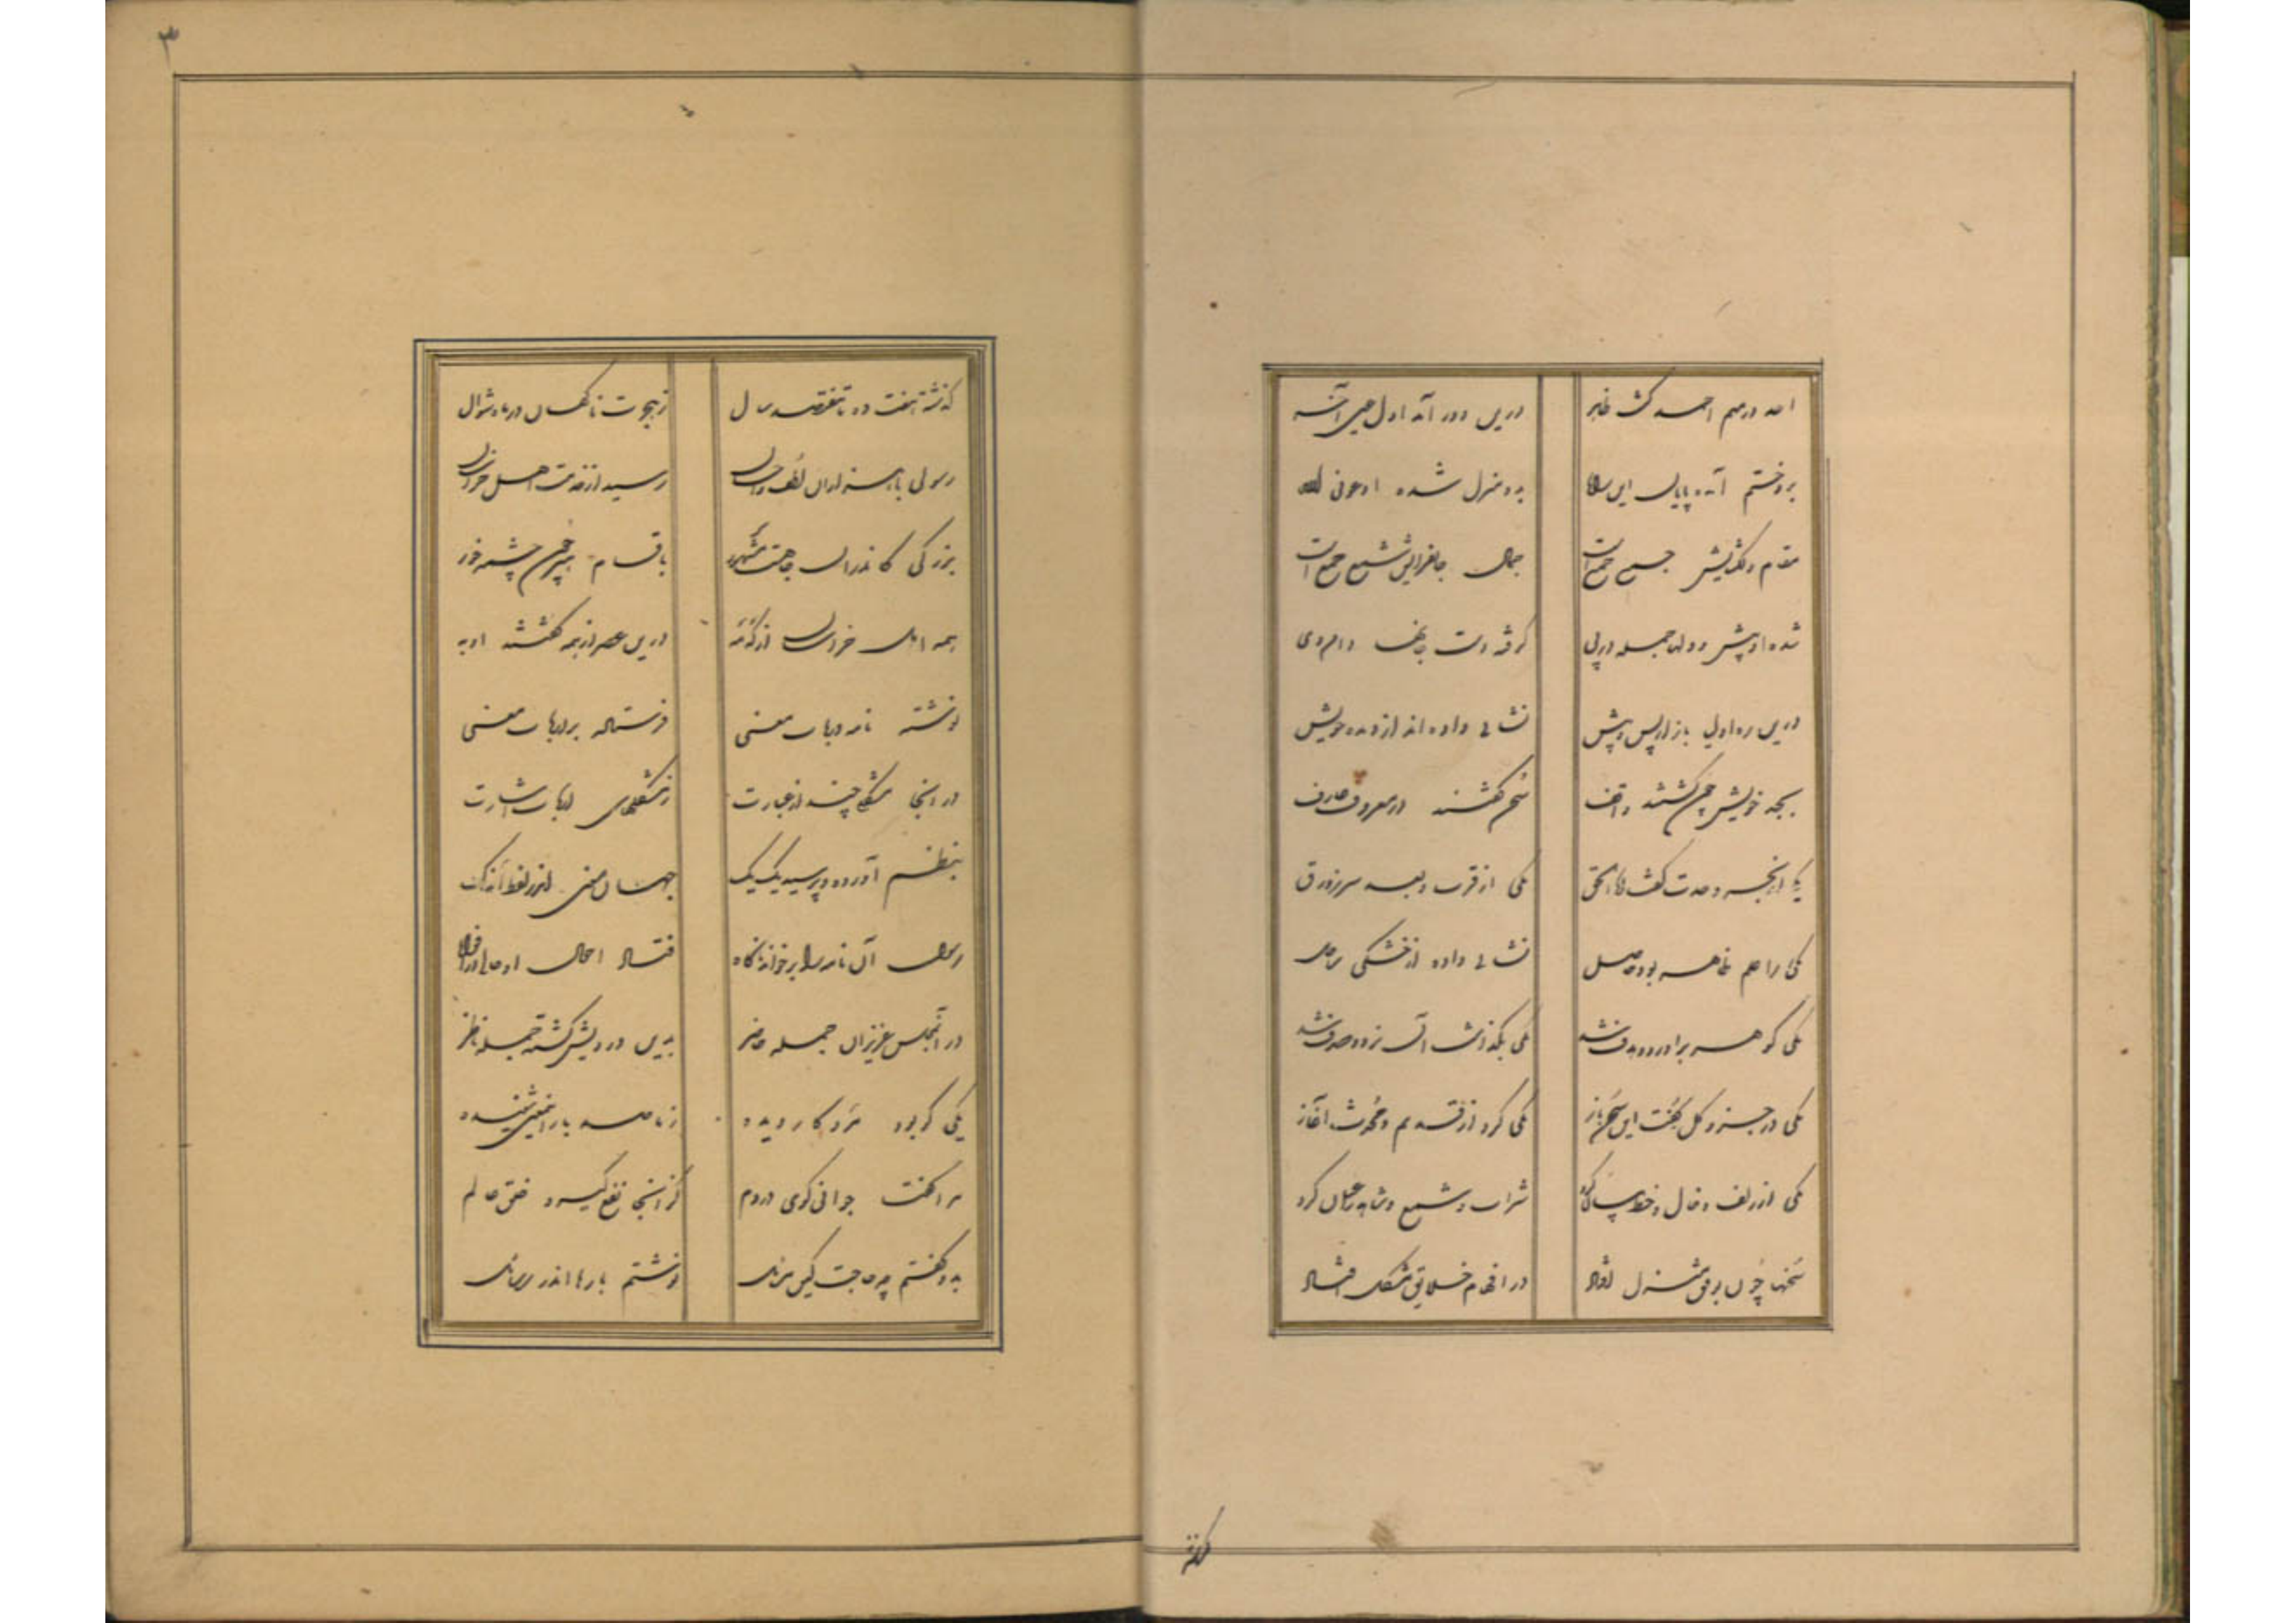 احد در میم احمد گشت ظاهر درین دور آمد اول عین آخر
برو ختم آمده پایان این راه بدو منزل شده ادعوا الی الله
مقام دلگشایش جمع جمع است جمال جانفزایش شمع جمع است
شده او پیش و دلها جمله در پی گرفته دست جانها دامن وی
درین ره اولیا باز از پس و پیش نشانی داده اند از دیده خویش
بحد خویش چون گشتند واقف سخن گفتند در معروف و عارف
یکی از بحر وحدت گفت انا الحق یکی از قرب و بعد سیر زورق
یکی را علم ظاهر بود حاصل نشانی داده از خشکی ساحل
یکی گوهر برآورد و هدف شد یکی بگذاشت آن نزد صدف شد
یکی در جزو و کل گفت این سخن باز یکی کرد از قدیم و محدث آغاز
یکی از زلف و خال و خط بیان کرد شراب و شمع و شاهد را عیان کرد
سخنها چون بوفق منزل افتاد در افهام خلایق مشکل افتاد
گذشته
۳
گذشته هفت و ده با هفتصد سال ز هجرت ناگهان در ماه شوال
رسولی با هزاران لطف و احسان رسید از خدمت اهل خراسان
بزرگی کاندران جا هست مشهور باقسام هنر چون چشمه خور
همه اهل خراسان از که و مه درین عصر از همه گفتند او به
نوشته نامه در باب معنی فرستاده بر ارباب معنی
در انجا مشکلی چند از عبارت ز مشکلهای ارباب اشارت
بنظم آورده و پرسیده یک یک جهان معنی اندر لفظ اندک
رسول آن نامه را برخواند ناگاه فتاد احوال او حالی در افواه
در آن مجلس عزیزان جمله حاضر بدین درویش گشته جمله ناظر
یکی کو بود مرد کار دیده ز ما صد بار این معنی شنیده
مرا گفتا جوابی گوی در دم کز انجا نفع گیرد خلق عالم
بدو گفتم چه حاجت کین مسائل نوشتم بارها اندر رسائل